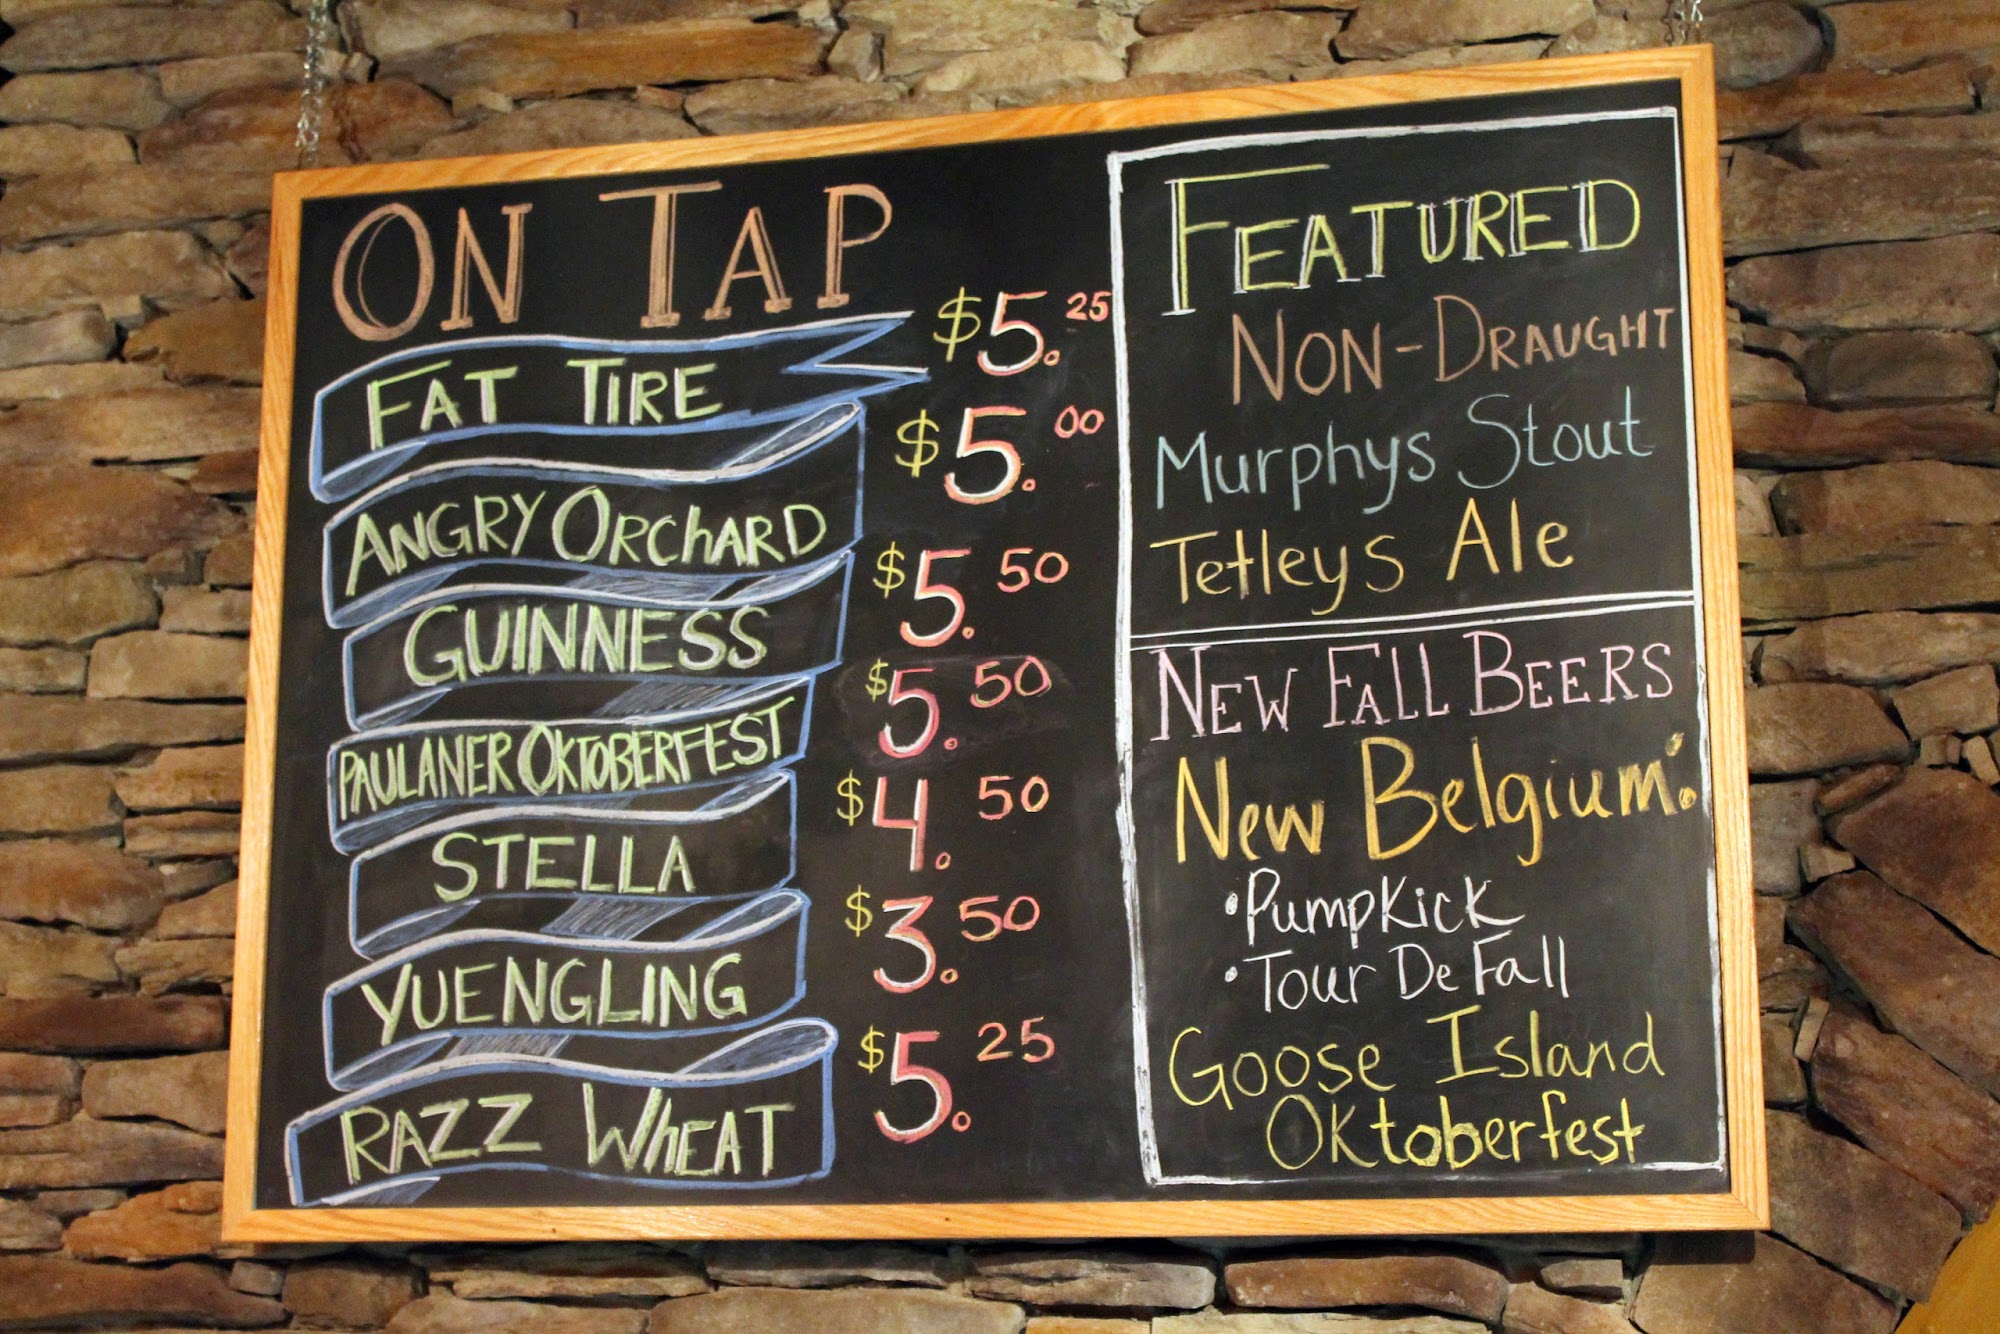 ON TAP
FAT TIRE $5.25
ANGRY ORCHARD $5.00
GUINNESS $5.50
PAULANER OKTOBERFEST $5.50
STELLA $4.50
YUENGLING $3.50
RAZZ WHEAT $5.25
FEATURED
NON-DRAUGHT
Murphys Stout
Tetleys Ale
NEW FALL BEERS
New Belgium:
•PUMPKICK
•TOUR DE FALL
Goose Island
Oktoberfest